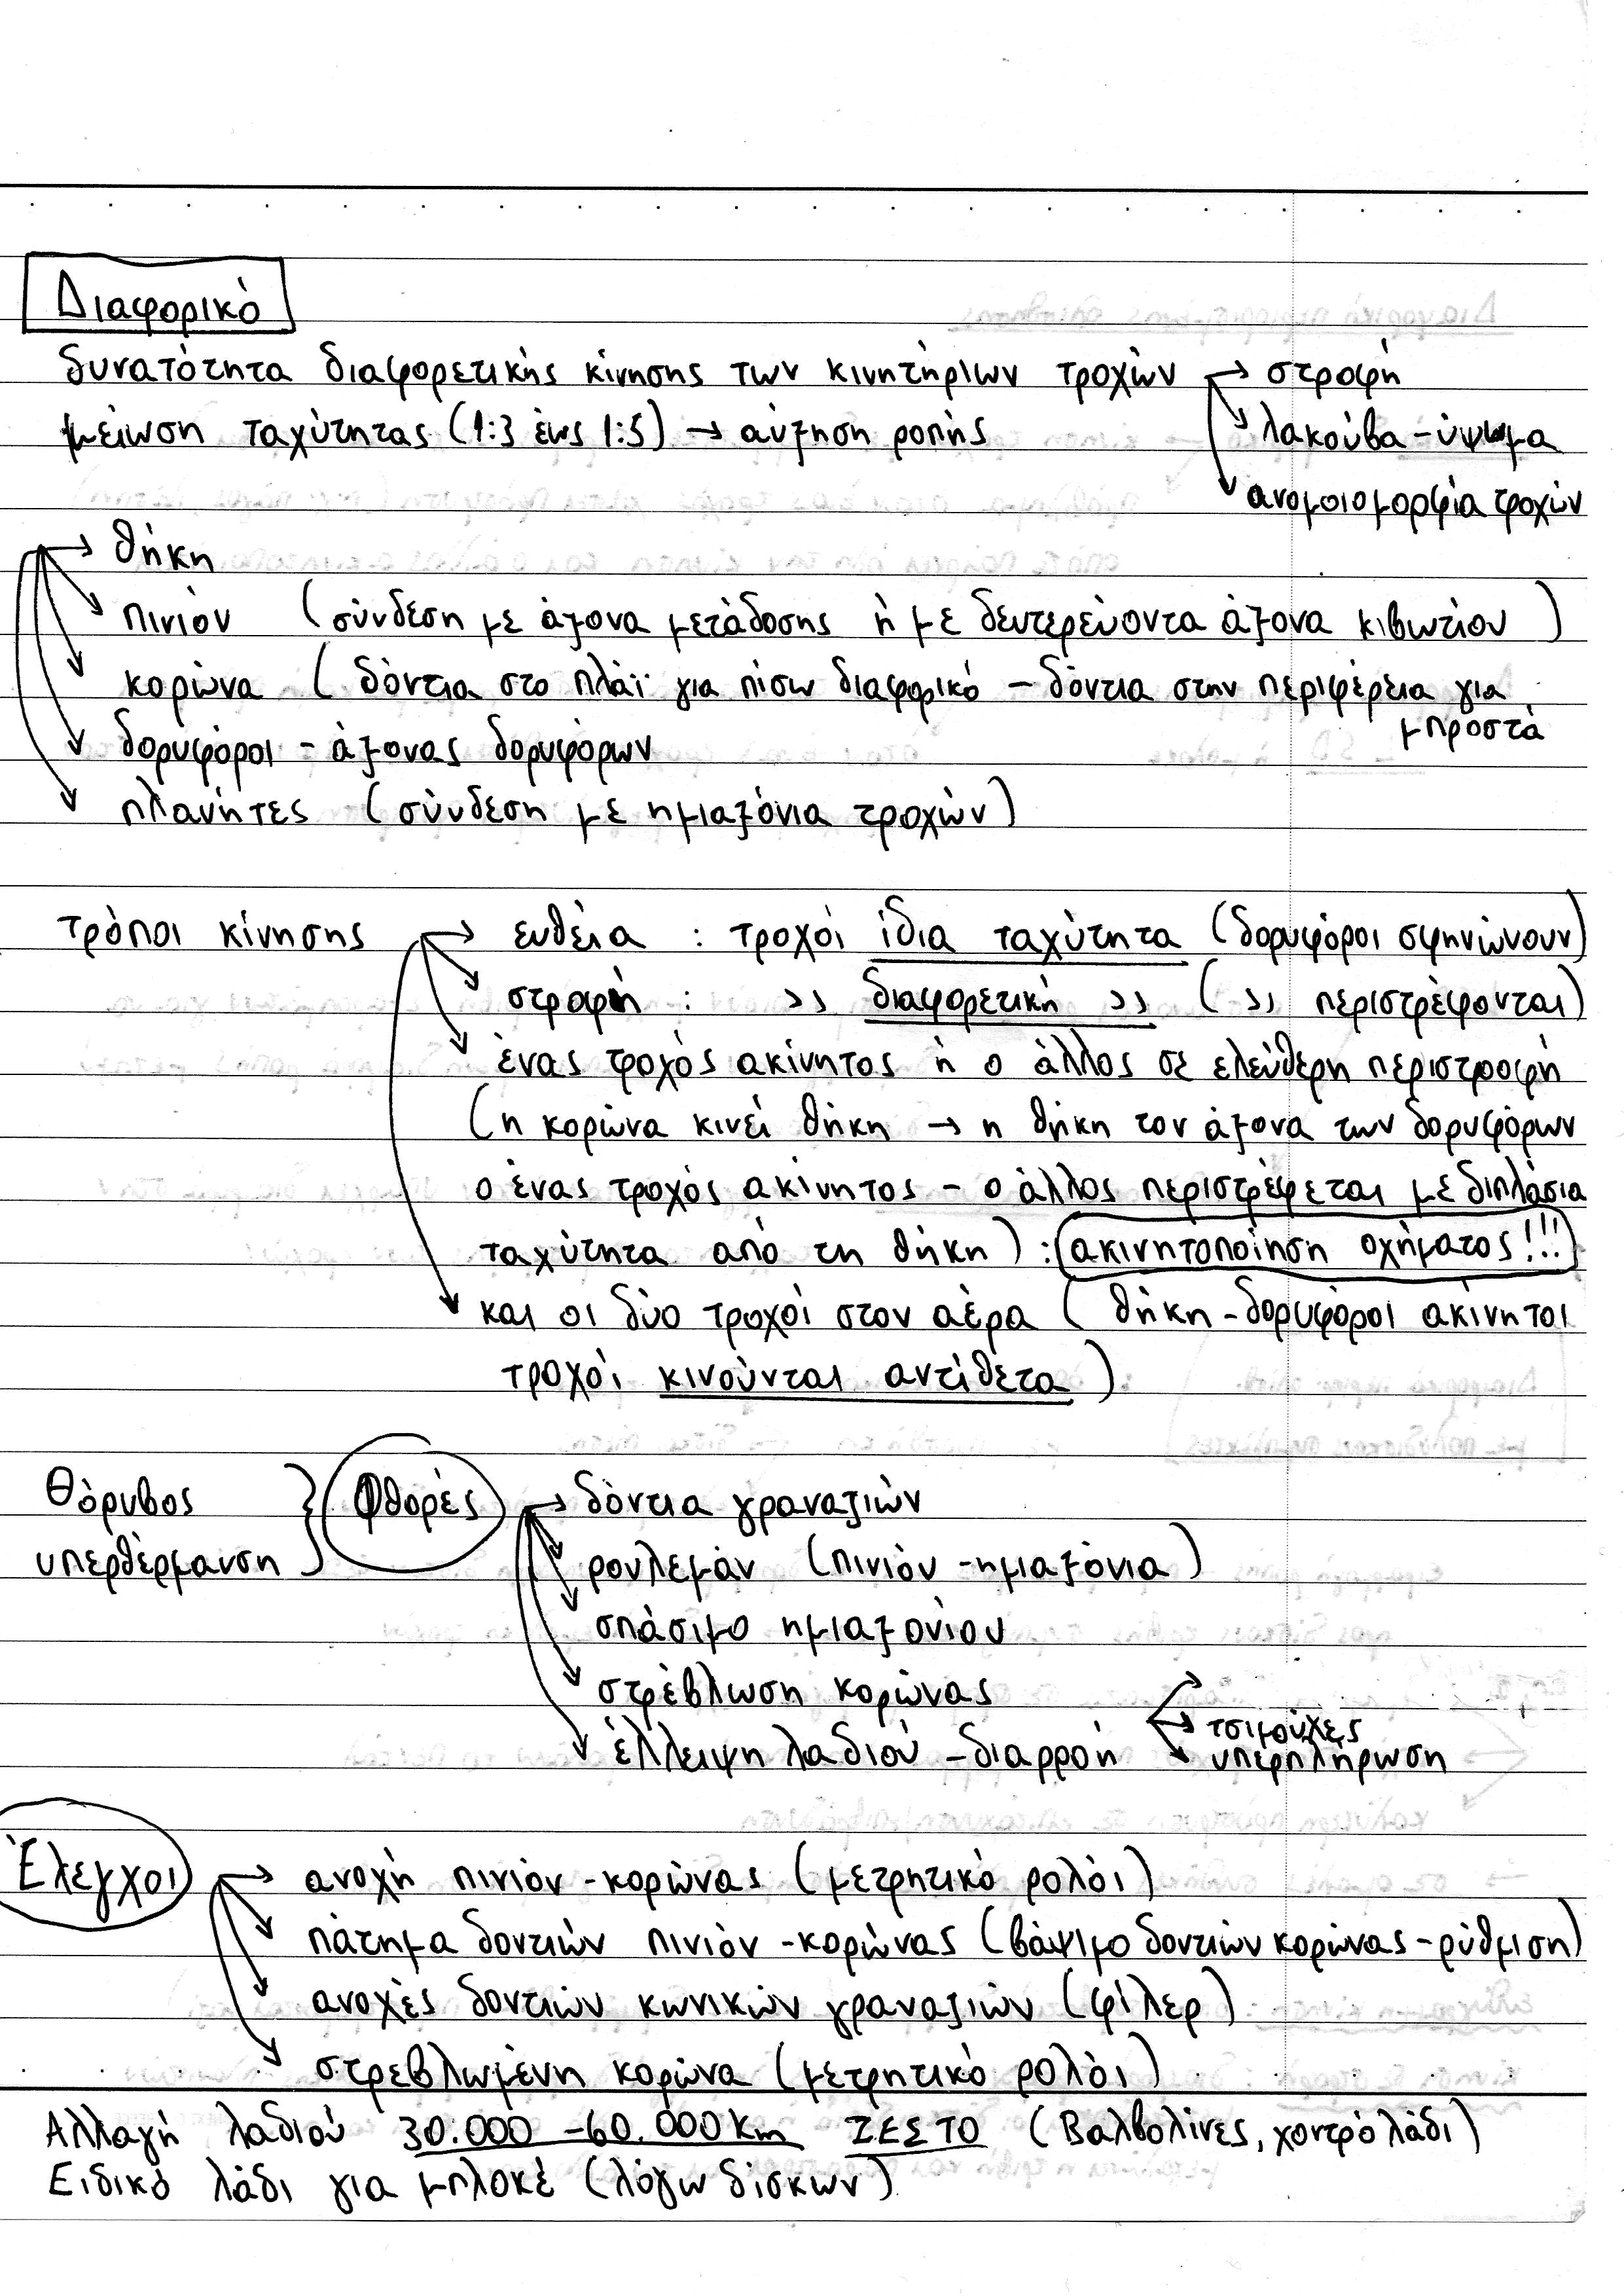 Διαφορικό
δυνατότητα διαφορετικής κίνησης των κινητήριων τροχών → στροφή
μείωση ταχύτητας (1:3 έως 1:5) → αύξηση ροπής
λακούβα - ύψωμα
ανομοιομορφία τροχών
→ θήκη
πινιόν (σύνδεση με άξονα μετάδοσης ή με δευτερεύοντα άξονα κιβωτίου)
κορώνα (δόντια στο πλάϊ για πίσω διαφορικό – δόντια στην περιφέρεια για
μπροστά
δορυφόροι - άξονας δορυφόρων
πλανήτες (σύνδεση με ημιαξόνια τροχών)
τρόποι κίνησης → ευθεία : τροχοί ίδια ταχύτητα (δορυφόροι σφηνώνουν)
στροφή : >> διαφορετική >> ( >> περιστρέφονται)
ένας τροχός ακίνητος ή ο άλλος σε ελεύθερη περιστροφή
(η κορώνα κινεί θήκη → η θήκη τον άξονα των δορυφόρων
ο ένας τροχός ακίνητος – ο άλλος περιστρέφεται με διπλάσια
ταχύτητα από τη θήκη) : ακινητοποίηση οχήματος!!!
και οι δύο τροχοί στον αέρα (θήκη - δορυφόροι ακίνητοι
τροχοί κινούνται αντίθετα)
Θόρυβος } Φθορές → δόντια γραναζιών
υπερθέρμανση
ρουλεμάν (πινιόν - ημιαξόνια)
σπάσιμο ημιαξονίου
στρέβλωση κορώνας
τσιμούχες
έλλειψη λαδιού - διαρροή
υπερπλήρωση
Έλεγχοι → ανοχή πινιόν - κορώνας (μετρητικό ρολόι)
πάτημα δοντιών πινιόν - κορώνας (βάψιμο δοντιών κορώνας - ρύθμιση)
ανοχές δοντιών κωνικών γραναζιών (φίλερ)
στρεβλωμένη κορώνα (μετρητικό ρολόι)
Αλλαγή λαδιού 30.000 - 60.000 km ΖΕΣΤΟ (Βαλβολίνες, χοντρό λάδι)
Ειδικό λάδι για μπλοκέ (λόγω δίσκων)